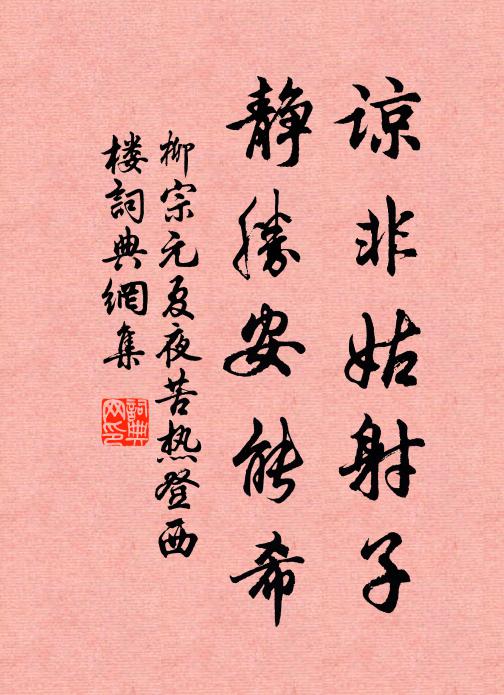 谅非姑射子
静胜安能希
柳宗元夏夜苦热登西
楼词典网集
词典
网印